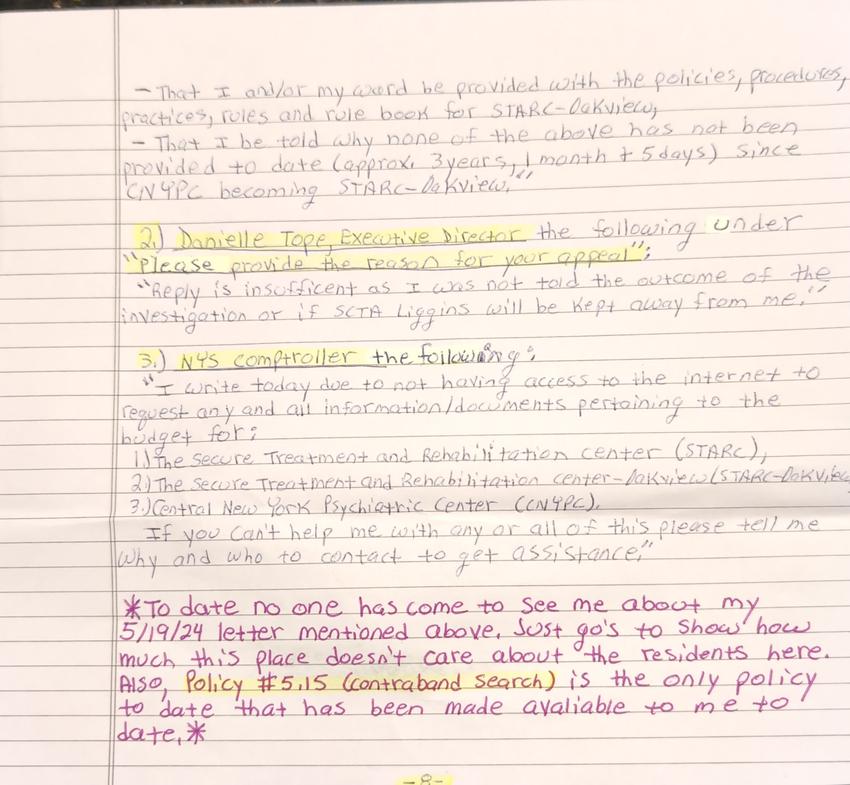 - That I and/or my ward be provided with the policies, procedures,
practices, rules and rule book for STARC-Oakview,
- That I be told why none of the above has not been
provided to date (approx. 3 years, 1 month + 5 days) since
CNYPC becoming STARC-Oakview."
2.) Danielle Tope, Executive Director the following under
"Please provide the reason for your appeal":
"Reply is insufficent as I was not told the outcome of the
investigation or if SCTA Liggins will be kept away from me."
3.) NYS comptroller the following:
"I write today due to not having access to the internet to
request any and all information/documents pertaining to the
budget for:
1.) The Secure Treatment and Rehabilitation center (STARC),
2.) The Secure Treatment and Rehabilitation center-Oakview (STARC-Oakview
3.) Central New York Psychiatric Center (CNYPC).
If you can't help me with any or all of this please tell me
why and who to contact to get assistance."
*To date no one has come to see me about my
5/19/24 letter mentioned above. Just go's to show how
much this place doesn't care about the residents here.
Also, Policy #5.15 (contraband search) is the only policy
to date that has been made avaliable to me to
date.*
-8-